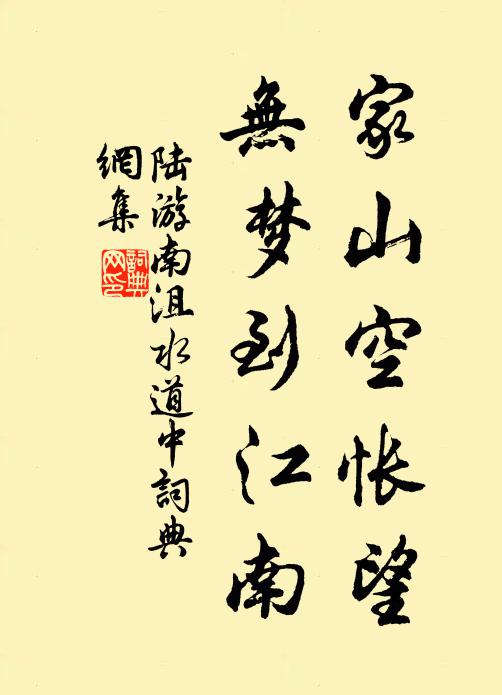 家山空怅望
無梦到江南
陆游南沮水道中詞典
網集
詞典
网印